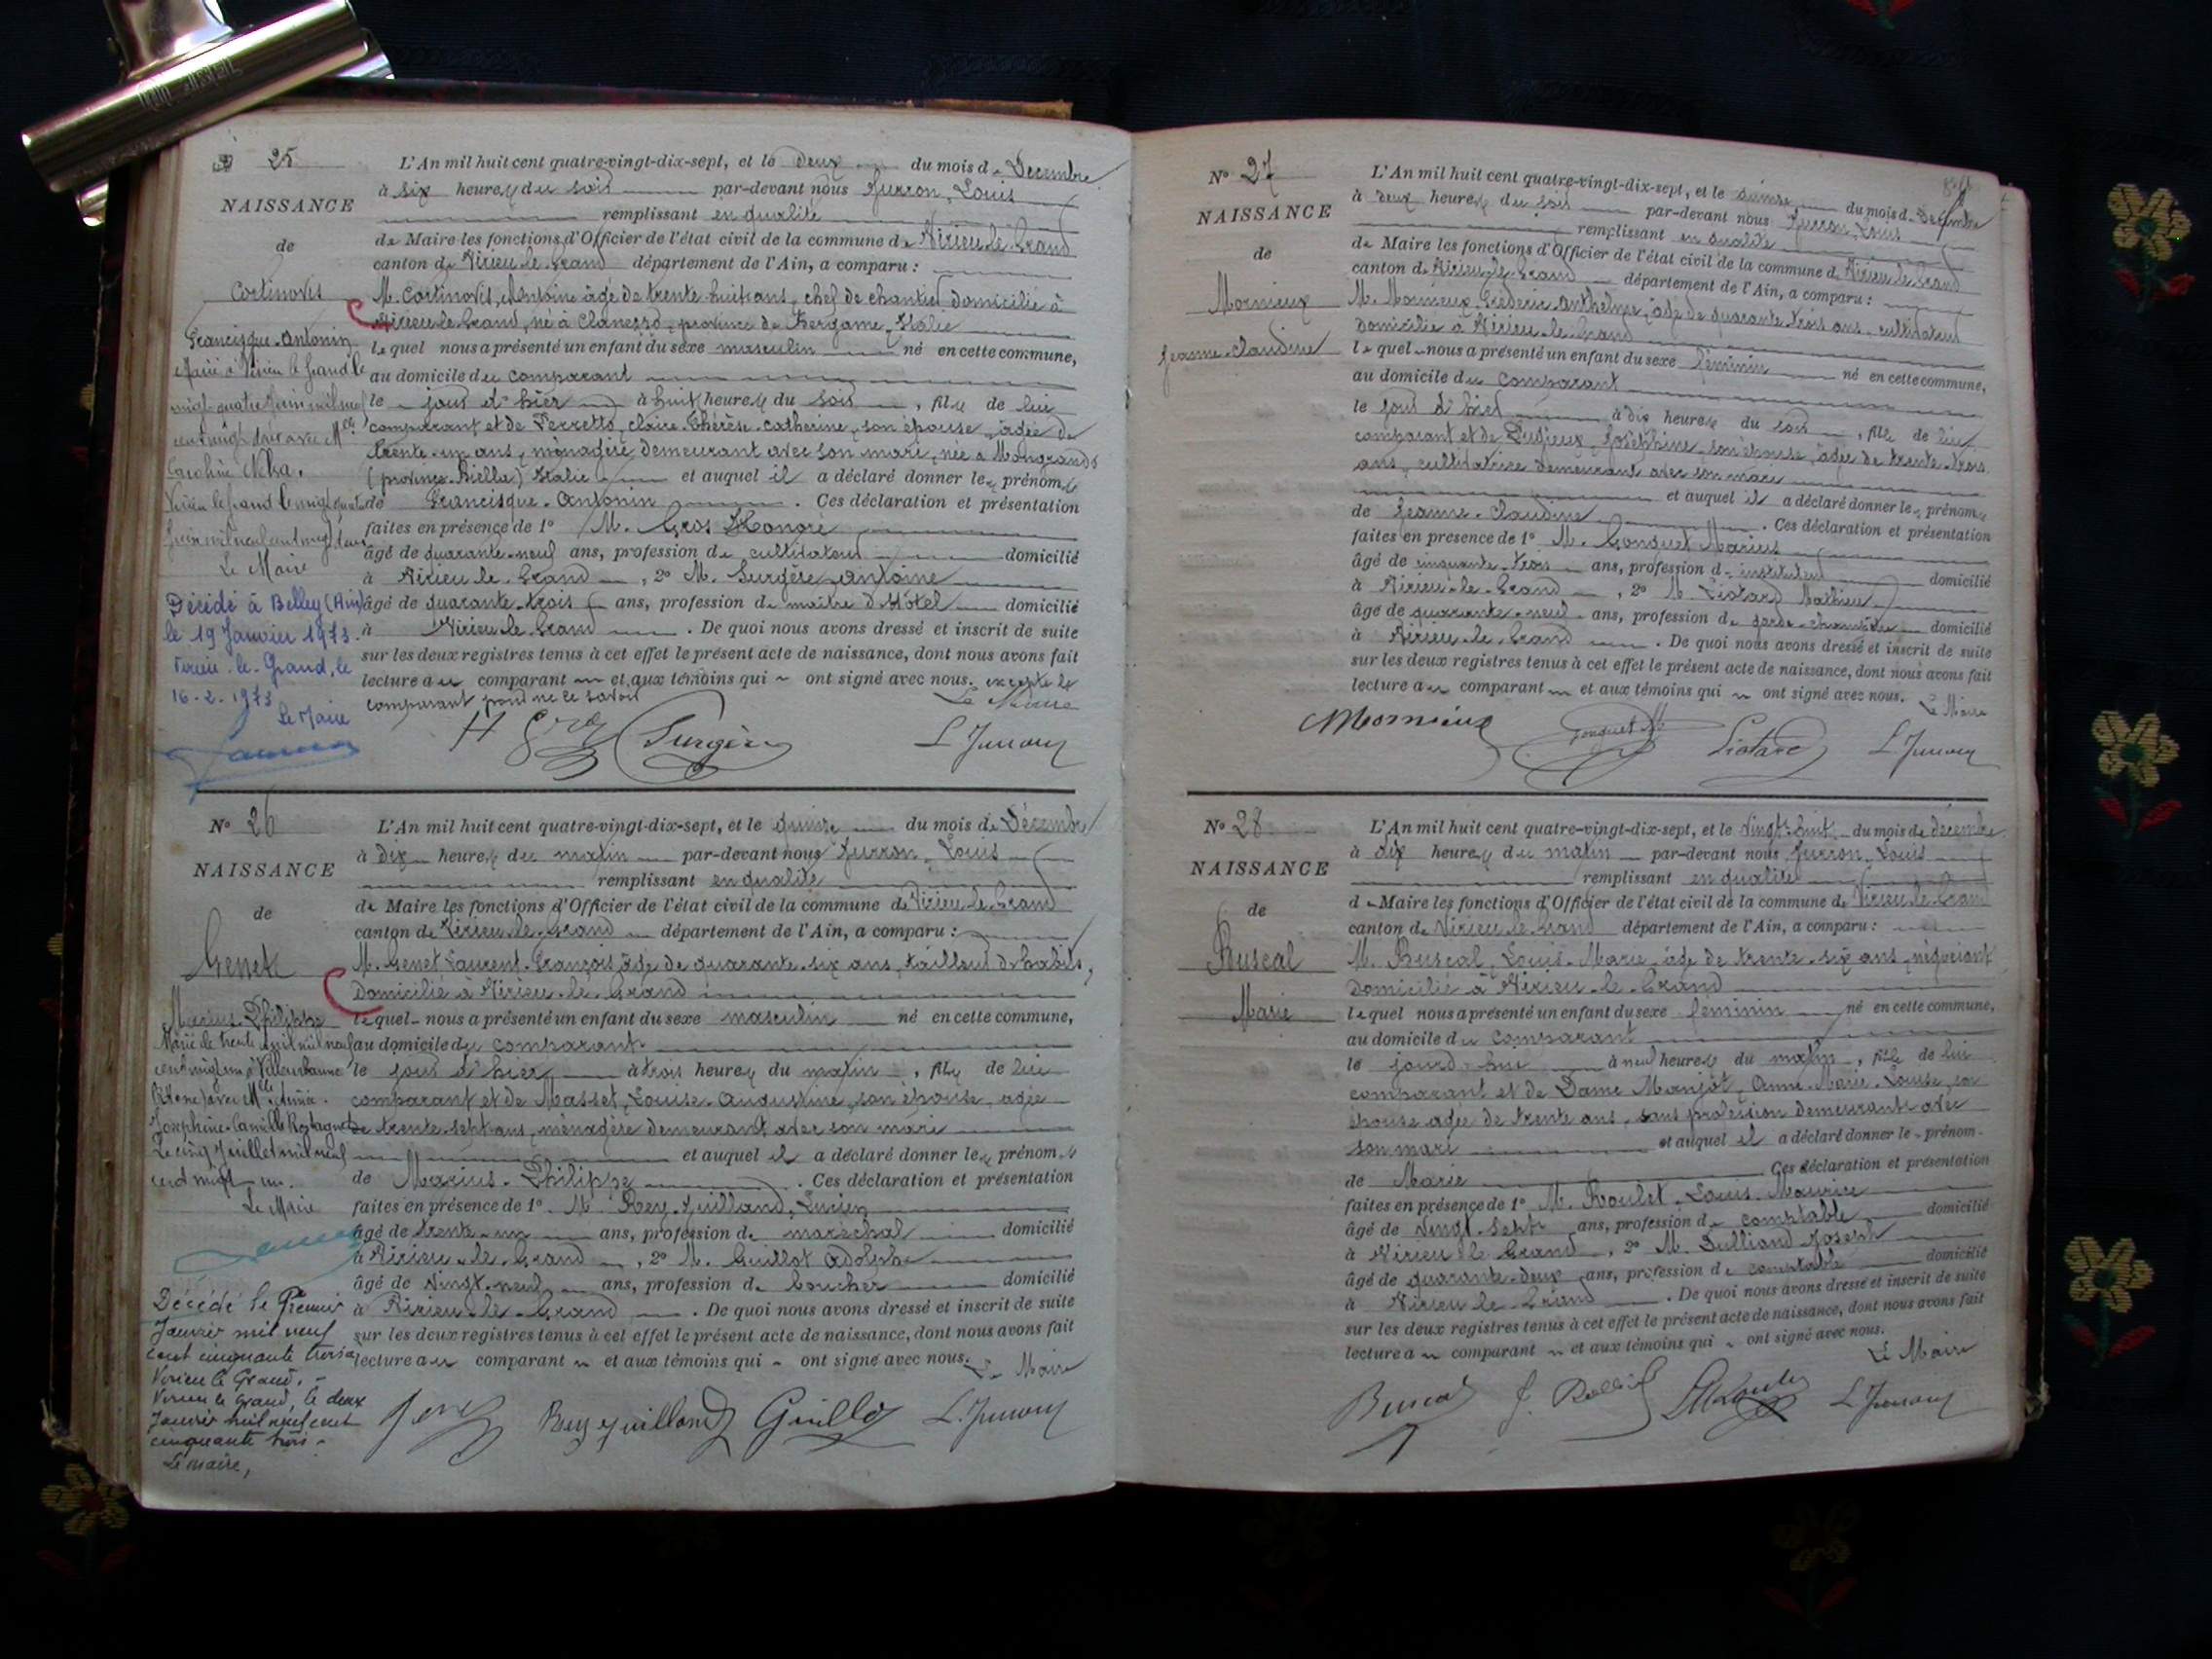 25
NAISSANCE
de
Cortinovis
Francisque-Antonin
Marié à Virieu le Grand le
vingt quatre juin mil neuf
cent vingt deux avec Mlle
Caroline
Virieu le Grand le vingt quatre
juin mil neuf cent vingt deux
Le Maire
Décédé à Belley (Ain)
le 19 Janvier 1973.
Virieu-le-Grand, le
16-2-1973
Le Maire
L'An mil huit cent quatre-vingt-dix-sept, et le deux du mois de Décembre
à six heures du soir par-devant nous Jurron, Louis
remplissant en qualité
de Maire les fonctions d'Officier de l'état civil de la commune de Virieu-le-Grand
canton de Virieu-le-Grand département de l'Ain, a comparu :
M. Cortinovis, Antoine âgé de trente-huit ans, chef de chantier domicilié à
Virieu-le-Grand, né à Clanezzo, province de Bergame, Italie
lequel nous a présenté un enfant du sexe masculin né en cette commune,
au domicile du comparant
le jour d'hier à huit heures du soir, fils de lui
comparant et de Perretto, Claire-Thérèse-Catherine, son épouse, âgée de
trente-un ans, ménagère demeurant avec son mari, née à Mongrando
(province Biella) Italie et auquel il a déclaré donner les prénoms
de Francisque-Antonin. Ces déclaration et présentation
faites en présence de 1° M. Gros Honoré
âgé de quarante-neuf ans, profession de cultivateur domicilié
à Virieu-le-Grand, 2° M. Surgère Antoine
âgé de quarante-trois ans, profession de maître d'Hôtel domicilié
à Virieu-le-Grand. De quoi nous avons dressé et inscrit de suite
sur les deux registres tenus à cet effet le présent acte de naissance, dont nous avons fait
lecture au comparant et aux témoins qui ont signé avec nous. excepté le
comparant pour ne le savoir
Le Maire
H Gros Surgère L. Jurron
N° 26
NAISSANCE
de
Genet
Marius-Philippe
Marié le trente avril mil neuf
cent vingt un à Villeurbanne
(Rhône) avec Mlle
Joséphine-Camille Rostagnat
Le cinq Juillet mil neuf
cent vingt un.
Le Maire
Décédé le Premier
Janvier mil neuf
cent cinquante trois à
Virieu le Grand.
Virieu le Grand, le deux
Janvier mil neuf cent
cinquante trois
Le Maire,
L'An mil huit cent quatre-vingt-dix-sept, et le quinze du mois de Décembre
à dix heures du matin par-devant nous Jurron, Louis
remplissant en qualité
de Maire les fonctions d'Officier de l'état civil de la commune de Virieu-le-Grand
canton de Virieu-le-Grand département de l'Ain, a comparu :
M. Genet Laurent-François, âgé de quarante-six ans, tailleur d'habits,
domicilié à Virieu-le-Grand
lequel nous a présenté un enfant du sexe masculin né en cette commune,
au domicile du comparant
le jour d'hier à trois heures du matin, fils de lui
comparant et de Masset, Louise-Augustine, son épouse, âgée
de trente-sept ans, ménagère demeurant avec son mari
et auquel il a déclaré donner les prénoms
de Marius-Philippe. Ces déclaration et présentation
faites en présence de 1° M. Rey-Juilland, Lucien
âgé de trente-un ans, profession de maréchal domicilié
à Virieu-le-Grand, 2° M. Guillot Adolphe
âgé de vingt-neuf ans, profession de boucher domicilié
à Virieu-le-Grand. De quoi nous avons dressé et inscrit de suite
sur les deux registres tenus à cet effet le présent acte de naissance, dont nous avons fait
lecture au comparant et aux témoins qui ont signé avec nous. Le Maire
Genet Rey Juilland Guillot L. Jurron
N° 27
NAISSANCE
de
Mornieux
Jeanne-Claudine
L'An mil huit cent quatre-vingt-dix-sept, et le quinze du mois de Décembre
à deux heures du soir par-devant nous Jurron, Louis
remplissant en qualité
de Maire les fonctions d'Officier de l'état civil de la commune de Virieu-le-Grand
canton de Virieu-le-Grand département de l'Ain, a comparu :
M. Mornieux Frédéric Anthelme, âgé de quarante-trois ans, cultivateur
domicilié à Virieu-le-Grand
lequel nous a présenté un enfant du sexe féminin né en cette commune,
au domicile du comparant
le jour d'hier à dix heures du soir, fille de lui
comparant et de Joséphine, son épouse, âgée de trente-trois
ans, cultivatrice demeurant avec son mari
et auquel il a déclaré donner les prénoms
de Jeanne-Claudine. Ces déclaration et présentation
faites en présence de 1° M. Gonguet Marius
âgé de cinquante-trois ans, profession d'instituteur domicilié
à Virieu-le-Grand, 2° M. Liotard Mathieu
âgé de quarante-neuf ans, profession de garde-champêtre domicilié
à Virieu-le-Grand. De quoi nous avons dressé et inscrit de suite
sur les deux registres tenus à cet effet le présent acte de naissance, dont nous avons fait
lecture au comparant et aux témoins qui ont signé avec nous. Le Maire
Mornieux Gonguet M Liotard L. Jurron
N° 28
NAISSANCE
de
Buscal
Marie
L'An mil huit cent quatre-vingt-dix-sept, et le vingt-huit du mois de décembre
à dix heures du matin par-devant nous Jurron, Louis
remplissant en qualité
de Maire les fonctions d'Officier de l'état civil de la commune de Virieu-le-Grand
canton de Virieu-le-Grand département de l'Ain, a comparu :
M. Buscal, Louis-Marie, âgé de trente-six ans, négociant
domicilié à Virieu-le-Grand
lequel nous a présenté un enfant du sexe féminin né en cette commune,
au domicile du comparant
le jourd'hui à neuf heures du matin, fille de lui
comparant et de Dame Manjot, Anne-Marie-Louise, son
épouse âgée de trente ans, sans profession demeurant avec
son mari et auquel il a déclaré donner le prénom
de Marie Ces déclaration et présentation
faites en présence de 1° M. Roulet, Louis-Maurice
âgé de vingt-sept ans, profession de comptable domicilié
à Virieu-le-Grand, 2° M. Joseph
âgé de quarante-deux ans, profession de comptable domicilié
à Virieu-le-Grand. De quoi nous avons dressé et inscrit de suite
sur les deux registres tenus à cet effet le présent acte de naissance, dont nous avons fait
lecture au comparant et aux témoins qui ont signé avec nous.
Le Maire
Buscal L. Jurron